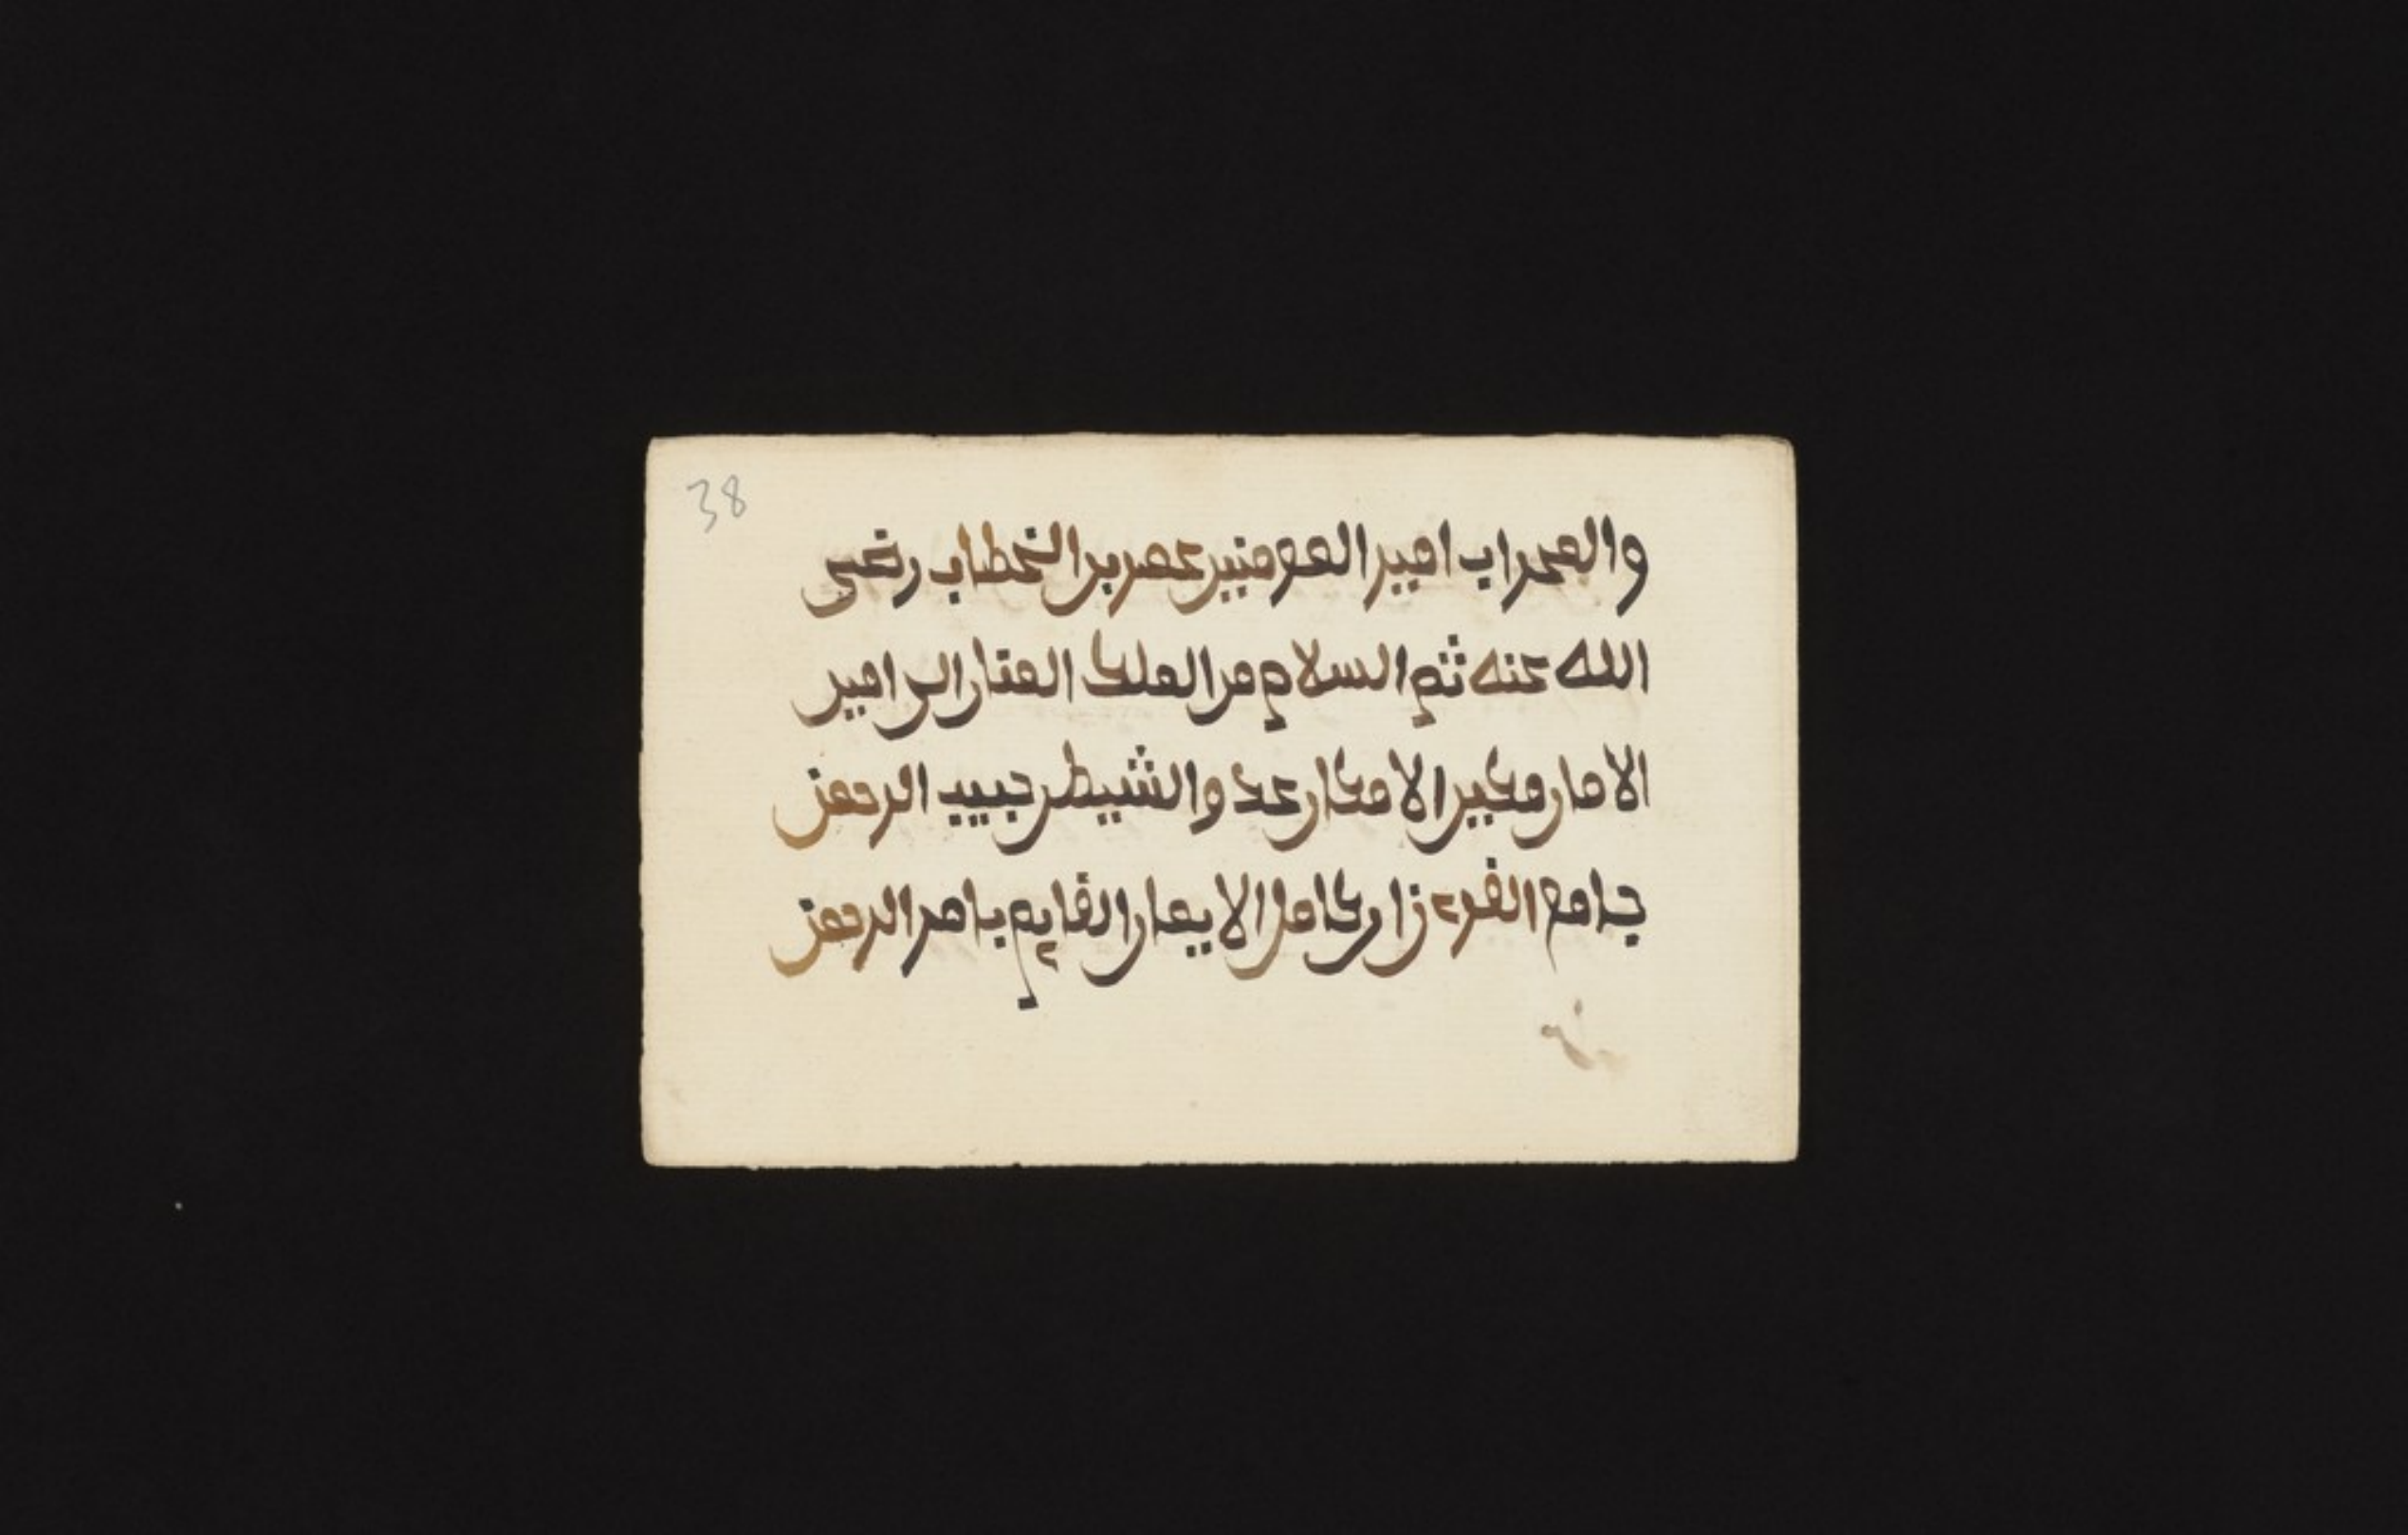 38
والمحراب امير المومنين عمر بن الخطاب رضي
الله عنه ثم السلام من الملك المنان الى امير
الامان ومكين الامكان عدو الشيطن حبيب الرحمن
جامع القرءان كامل الايمان القايم بامر الرحمن